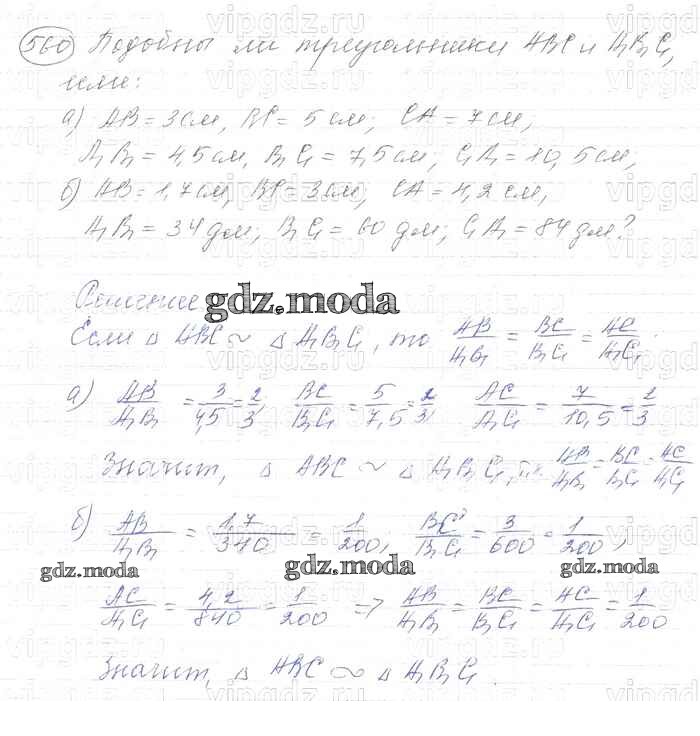 560 Подобны ли треугольники ABC и A₁B₁C₁,
если:
а) AB = 3 см, BC = 5 см; CA = 7 см;
A₁B₁ = 4,5 см, B₁C₁ = 7,5 см; C₁A₁ = 10,5 см;
б) AB = 1,7 см, BC = 3 см, CA = 4,2 см,
A₁B₁ = 34 дм; B₁C₁ = 60 дм; C₁A₁ = 84 дм?
Решение
gdz.moda
Если △ ABC ~ △ A₁B₁C₁, то AB/A₁B₁ = BC/B₁C₁ = AC/A₁C₁.
а) AB/A₁B₁ = 3/4,5 = 2/3 BC/B₁C₁ = 5/7,5 = 2/3 AC/A₁C₁ = 7/10,5 = 2/3
Значит, △ ABC ~ △ A₁B₁C₁, т.к. AB/A₁B₁ = BC/B₁C₁ = AC/A₁C₁
б) AB/A₁B₁ = 1,7/340 = 1/200, BC/B₁C₁ = 3/600 = 1/200,
gdz.moda gdz.moda gdz.moda
AC/A₁C₁ = 4,2/840 = 1/200 => AB/A₁B₁ = BC/B₁C₁ = AC/A₁C₁ = 1/200
Значит, △ ABC ~ △ A₁B₁C₁